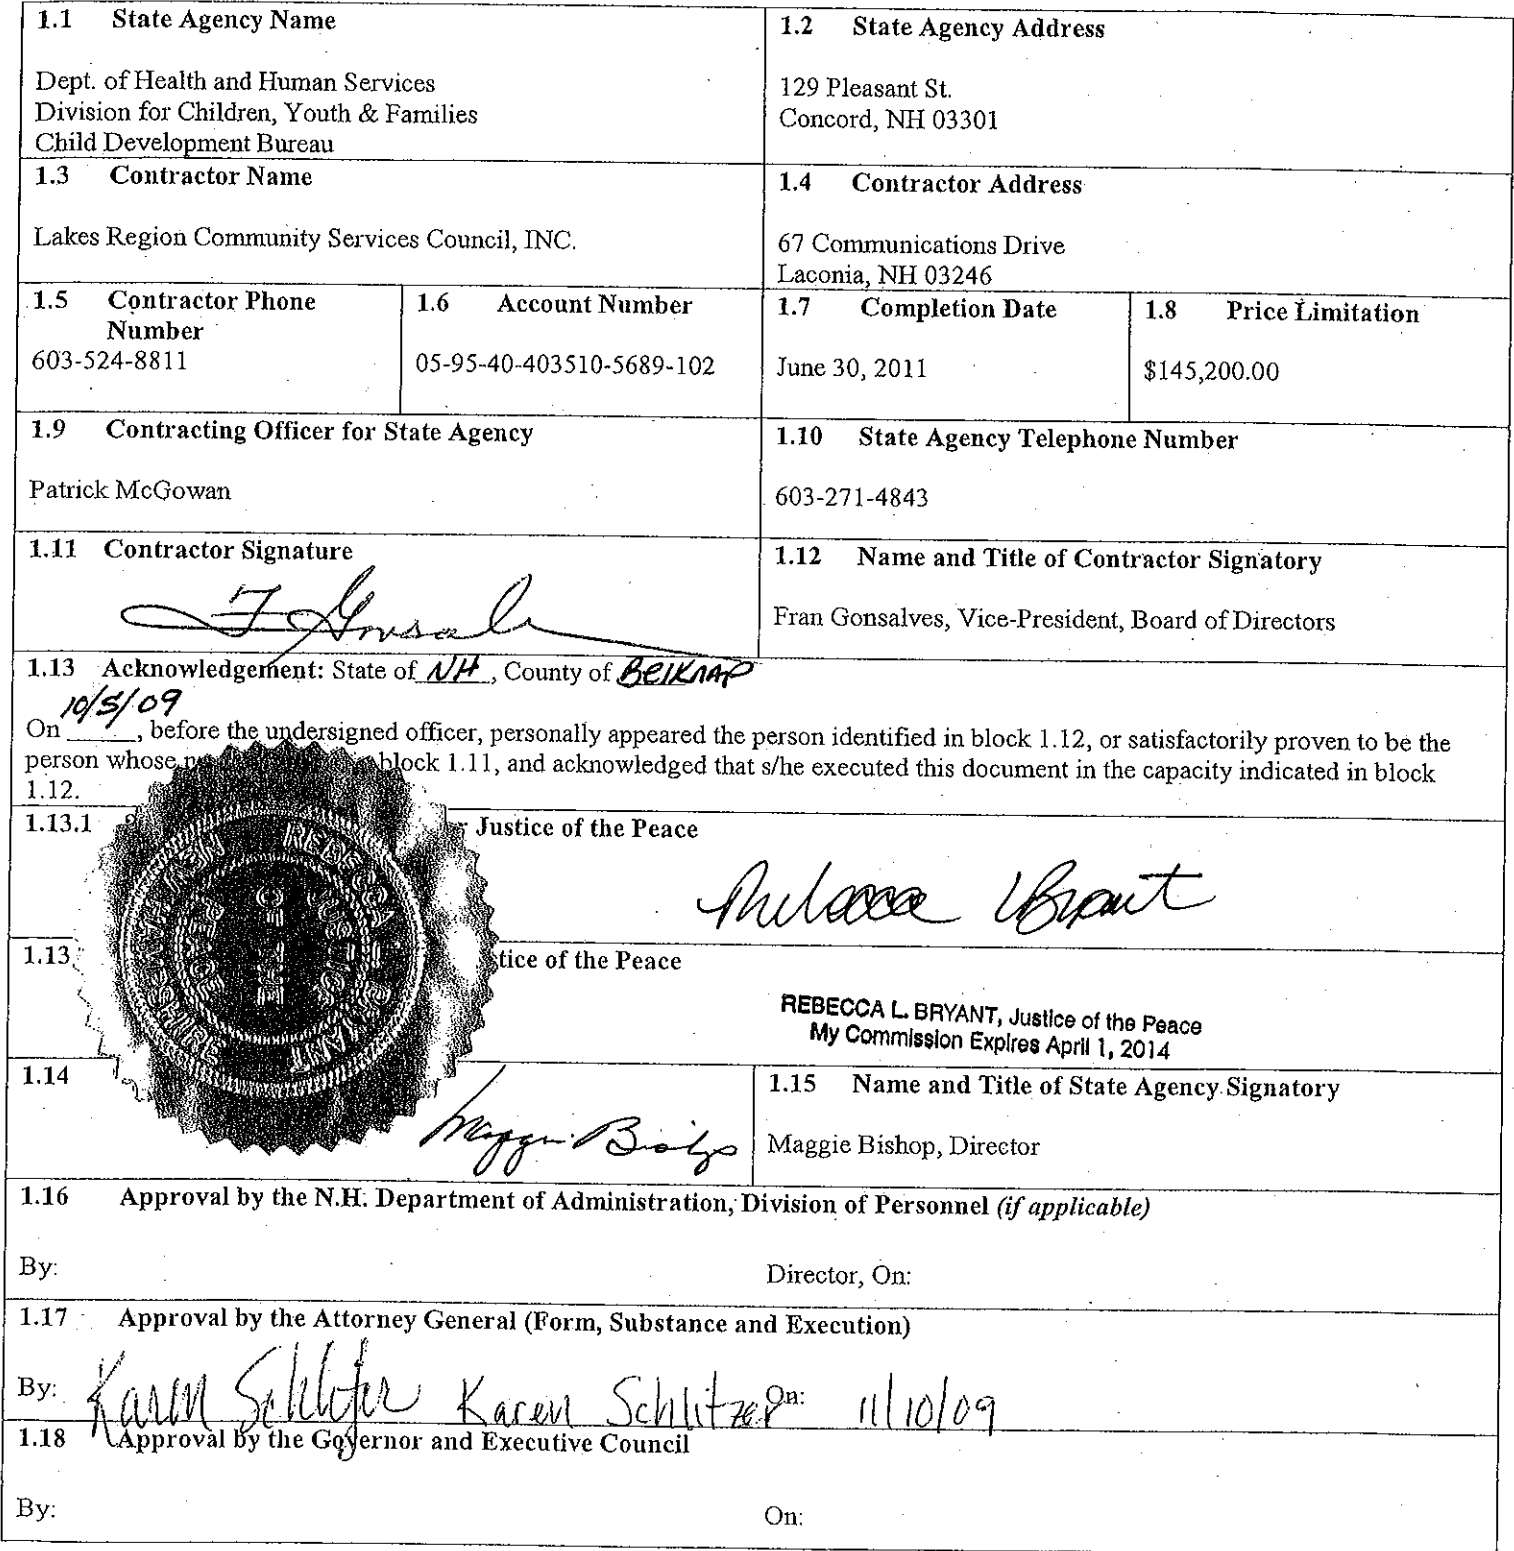 1.1 State Agency Name
Dept. of Health and Human Services
Division for Children, Youth & Families
Child Development Bureau
1.2 State Agency Address
129 Pleasant St.
Concord, NH 03301
1.3 Contractor Name
Lakes Region Community Services Council, INC.
1.4 Contractor Address
67 Communications Drive
Laconia, NH 03246
1.5 Contractor Phone
Number
603-524-8811
1.6 Account Number
05-95-40-403510-5689-102
1.7 Completion Date
June 30, 2011
1.8 Price Limitation
$145,200.00
1.9 Contracting Officer for State Agency
Patrick McGowan
1.10 State Agency Telephone Number
603-271-4843
1.11 Contractor Signature
1.12 Name and Title of Contractor Signatory
Fran Gonsalves, Vice-President, Board of Directors
1.13 Acknowledgement: State of NH, County of Belknap
10/5/09
On _____, before the undersigned officer, personally appeared the person identified in block 1.12, or satisfactorily proven to be the
person whose block 1.11, and acknowledged that s/he executed this document in the capacity indicated in block
1.12.
1.13.1 Justice of the Peace
Rebecca L Bryant
1.13. tice of the Peace
REBECCA L. BRYANT, Justice of the Peace
My Commission Expires April 1, 2014
1.14
Maggie Bishop
1.15 Name and Title of State Agency Signatory
Maggie Bishop, Director
1.16 Approval by the N.H. Department of Administration, Division of Personnel (if applicable)
By: Director, On:
1.17 Approval by the Attorney General (Form, Substance and Execution)
By: Karen Schlitzer Karen Schlitzer On: 11/10/09
1.18 Approval by the Governor and Executive Council
By: On: